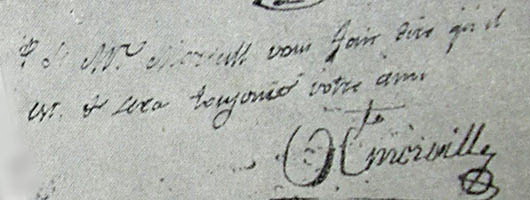 P. S. Mr. Morvill vous fair dire qu'il
est. & sera toujours votre ami
Morville